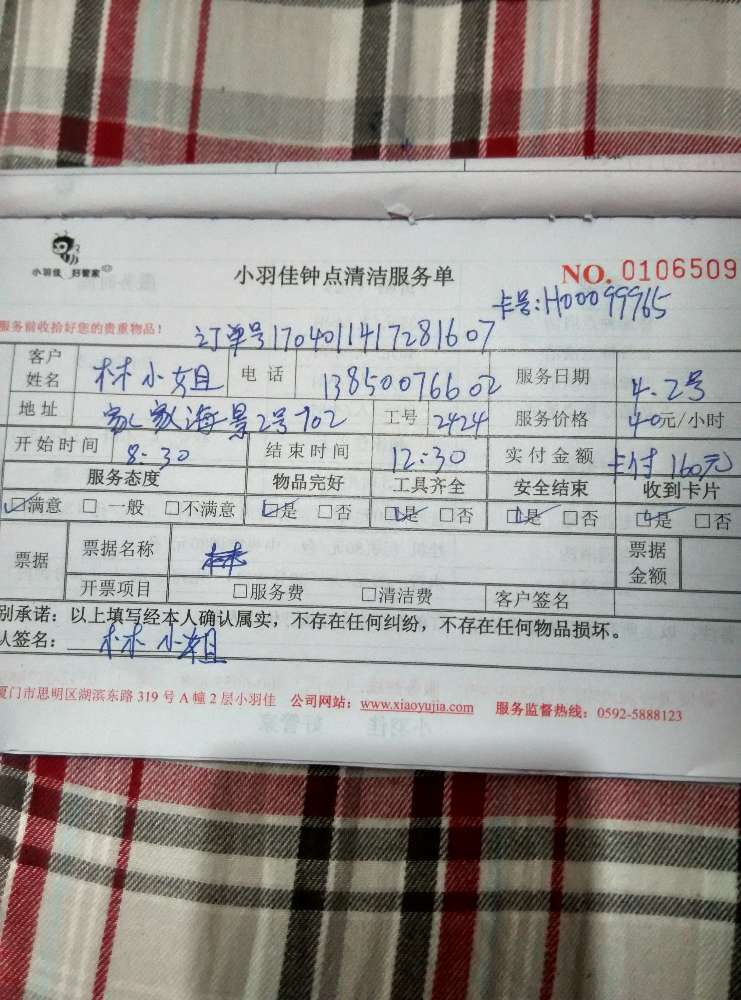 小羽佳 好管家
小羽佳钟点清洁服务单
NO. 0106509
卡号:H00099965
服务前收拾好您的贵重物品!
订单号1704011417281607
客户姓名 林小姐 电话 13850076602 服务日期 4.2号
地址 家家海景2号702 工号 2424 服务价格 40元/小时
开始时间 8:30 结束时间 12:30 实付金额 卡付160元
服务态度 物品完好 工具齐全 安全结束 收到卡片
☑满意 □一般 □不满意 ☑是 □否 ☑是 □否 ☑是 □否 ☑是 □否
票据 票据名称 票据金额
开票项目 □服务费 □清洁费 客户签名
别承诺:以上填写经本人确认属实,不存在任何纠纷,不存在任何物品损坏。
人签名: 林小姐
厦门市思明区湖滨东路 319 号 A 幢 2 层小羽佳 公司网站:www.xiaoyujia.com 服务监督热线:0592-5888123